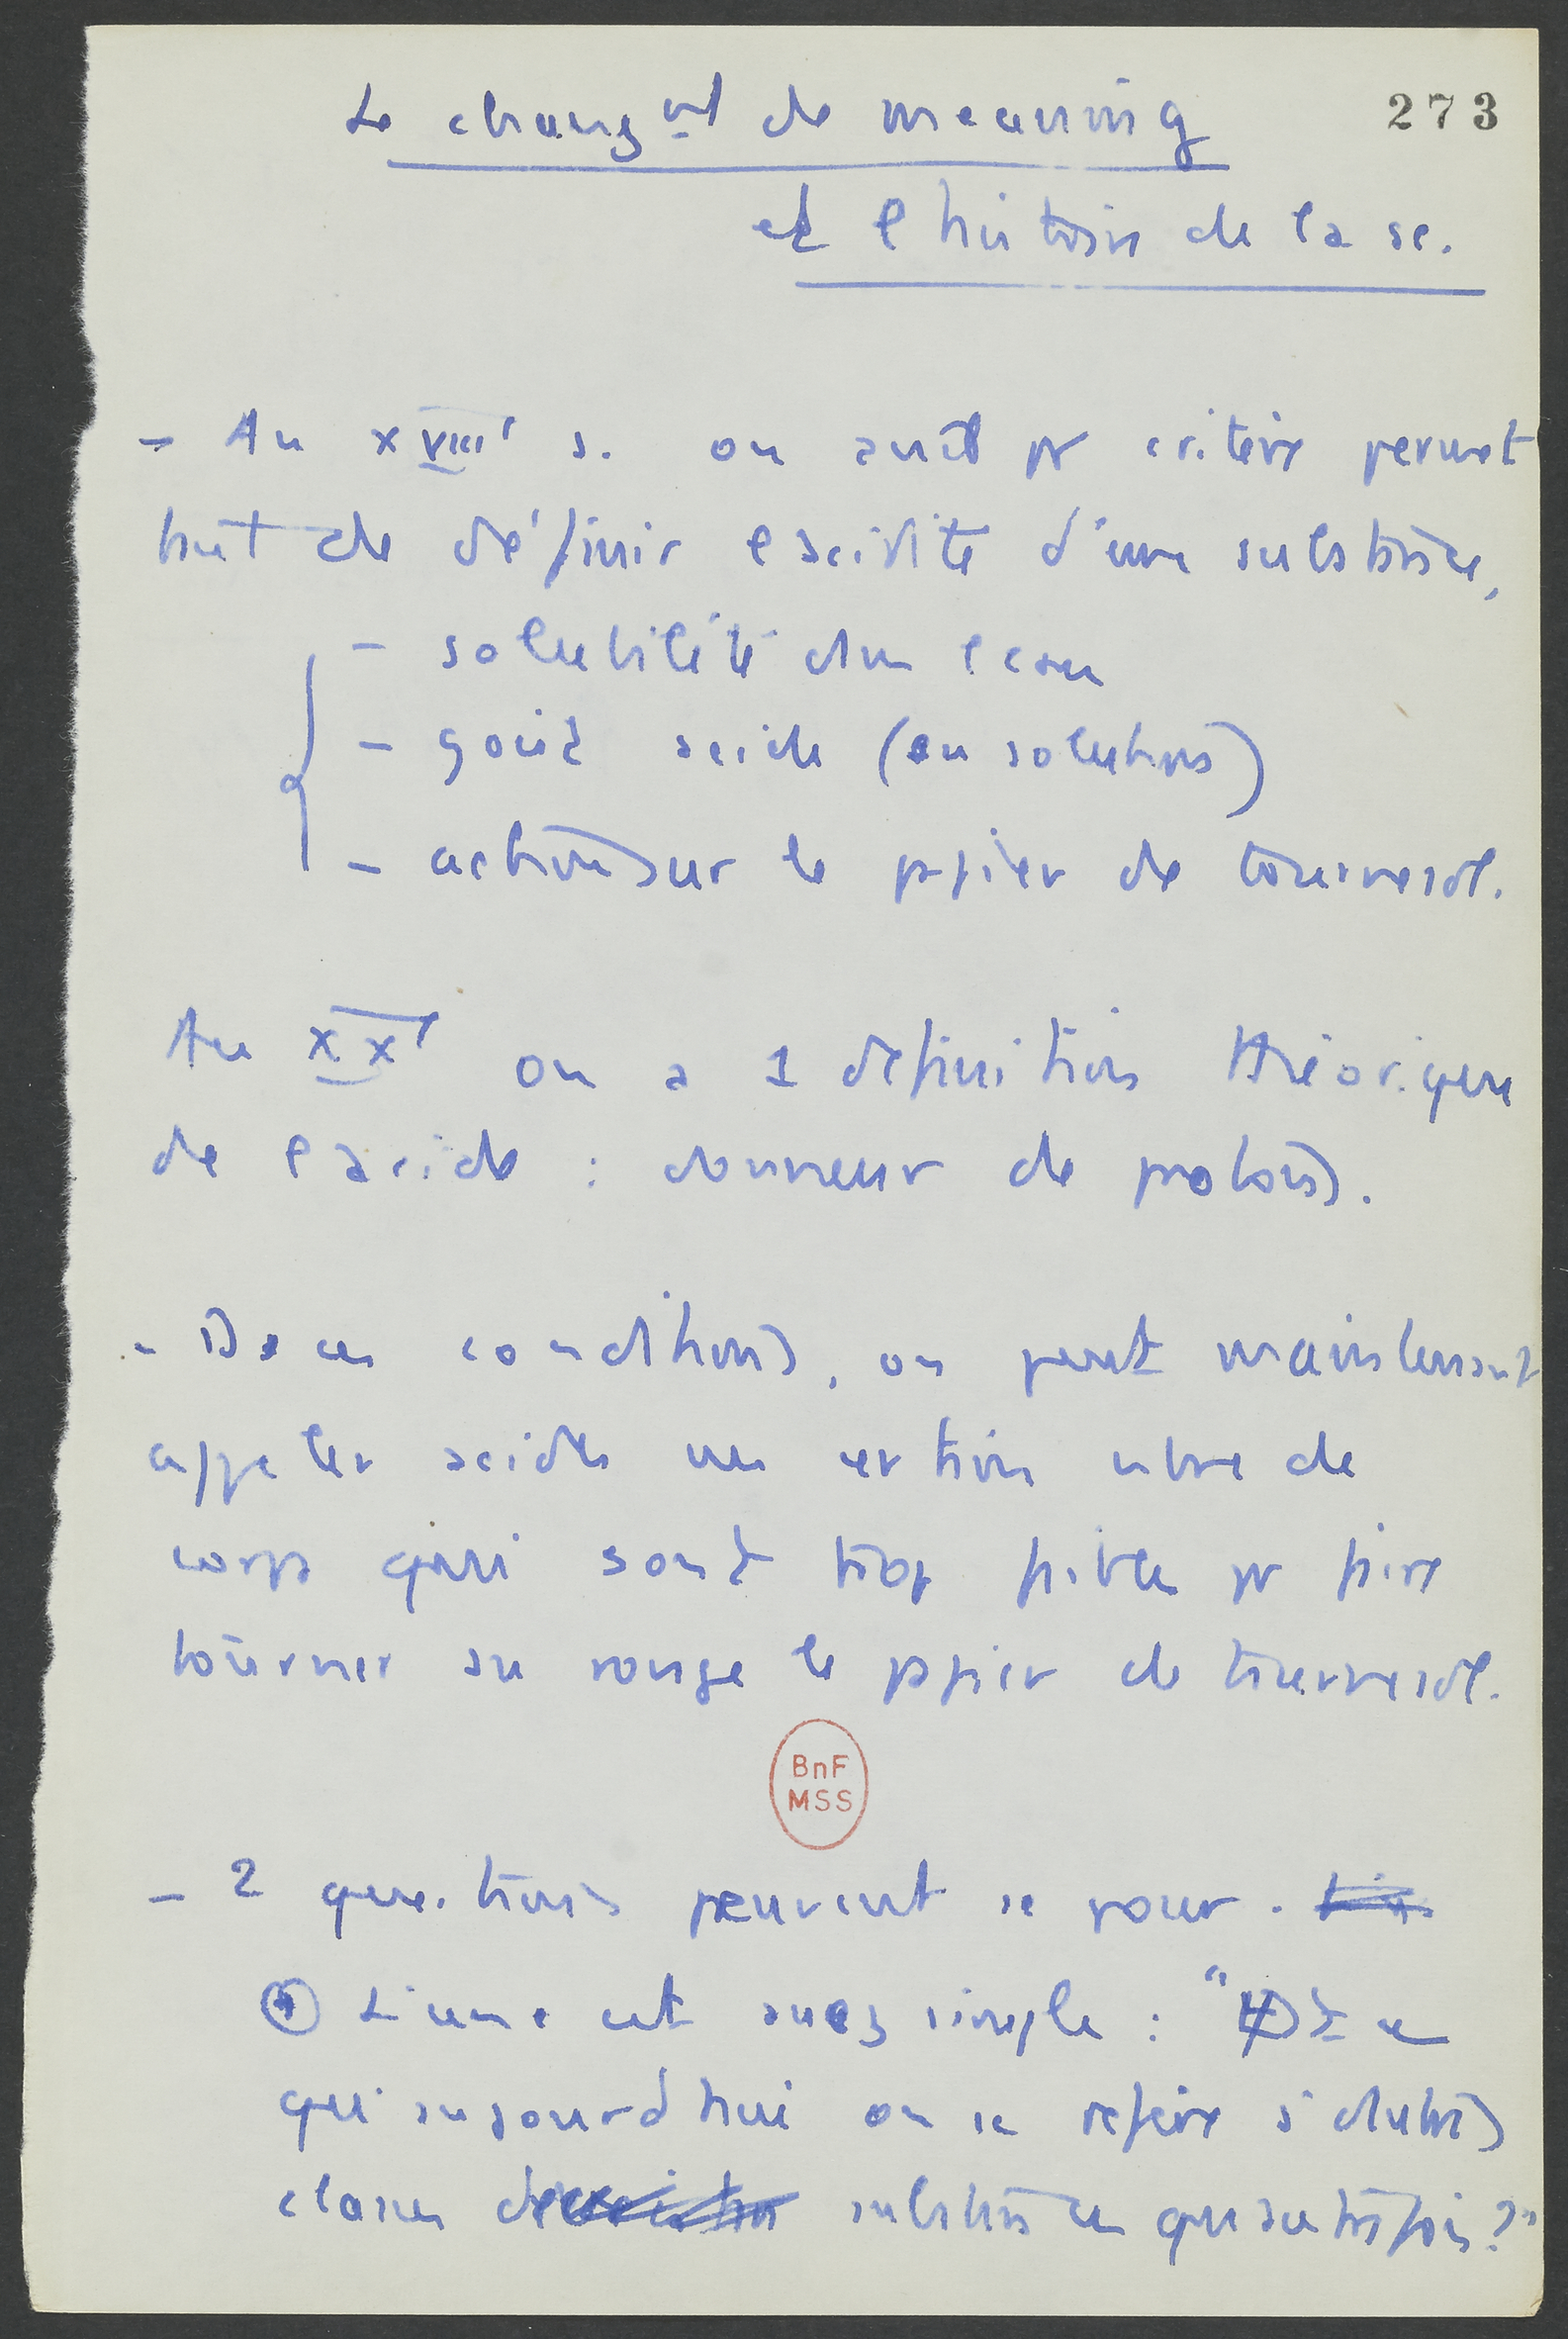 273
Le changmt de meaning
et l'histoire de la sc.
- Au XVIIIe s. on avait pr critère permet
tant de définir l'acidité d'une substance,
- solubilité dans l'eau
- goût acide (en solution)
- action sur le papier de tournesol.
Au XXe on a 1 définition théorique
de l'acide : donneur de protons.
- Ds ces conditions, on peut maintenant
appeler acides un certain nbre de
corps qui sont trop faibles pr faire
tourner au rouge le papier de tournesol.
BnF
MSS
- 2 questions peuvent se poser.
① L'une est assez simple : "Est ce
qu'aujourd'hui on se réfère à d'autres
classes de substances qu'autrefois ?"